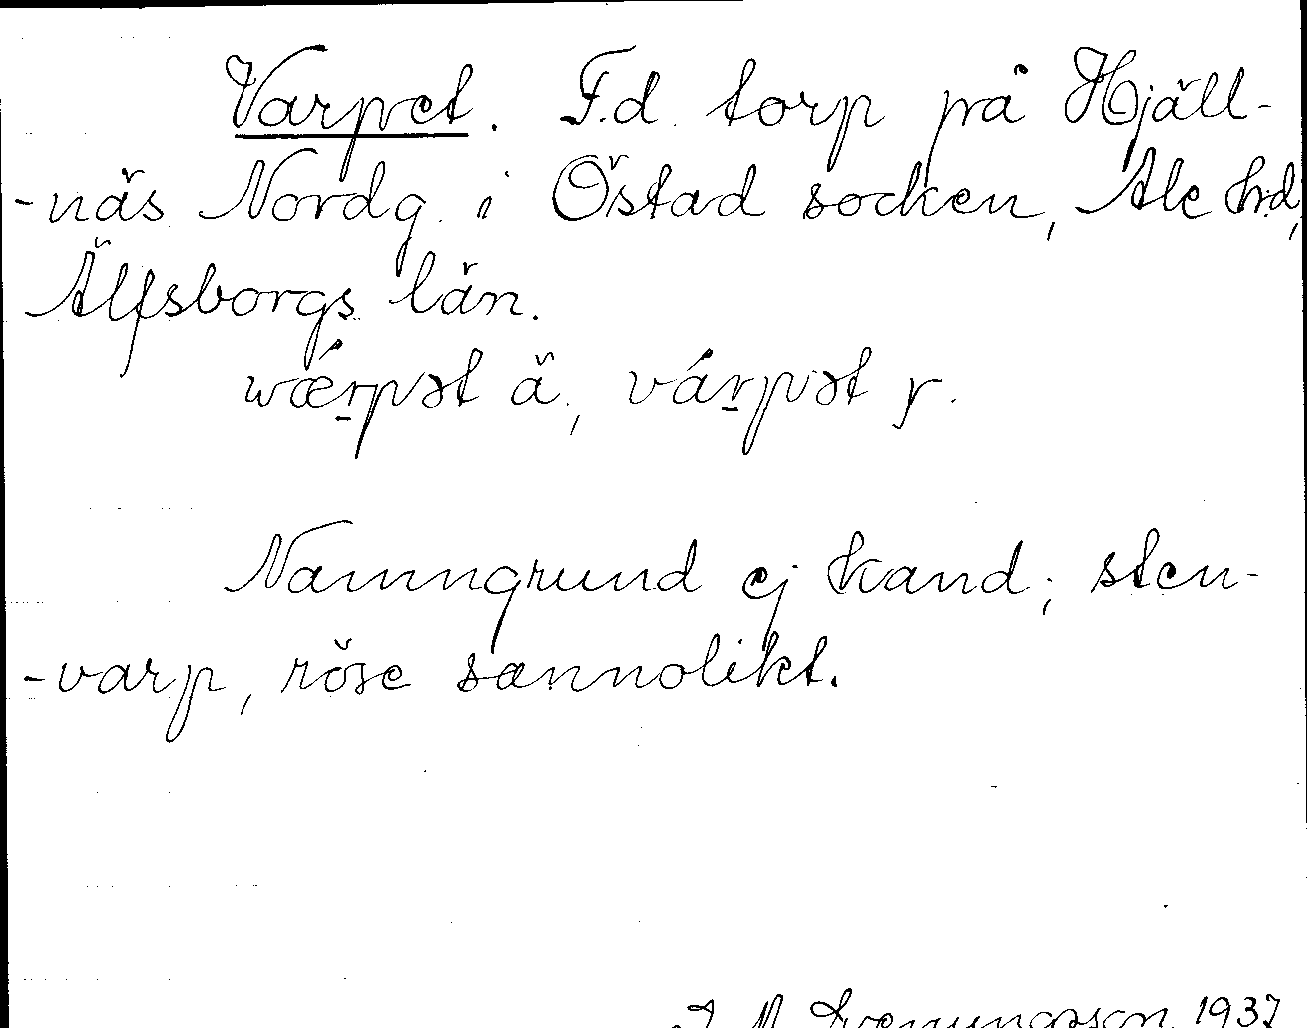 Varpet. F.d. torp på Hjäll-
-näs Nordg. i Östad socken, Ale hd,
Älfsborgs län.
wǽrpət ä., várpət y.
Namngrund ej känd; sten-
-varp, röse sannolikt.
1937